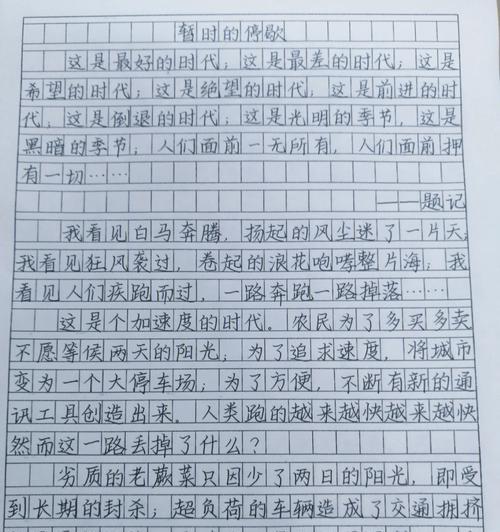 暂时的停歇
这是最好的时代；这是最差的时代；这是
希望的时代；这是绝望的时代；这是前进的时
代，这是倒退的时代；这是光明的季节，这是
黑暗的季节；人们面前一无所有，人们面前拥
有一切……
——题记
我看见白马奔腾，扬起的风尘迷了一片天；
我看见狂风袭过，卷起的浪花咆哮整片海；我
看见人们疾跑而过，一路奔跑一路掉落……
这是个加速度的时代。农民为了多买多卖
不愿等候两天的阳光；为了追求速度，将城市
变为一个大停车场；为了方便，不断有新的通
讯工具创造出来。人类跑的越来越快越来越快
然而这一路丢掉了什么？
劣质的老蕨菜只因少了两日的阳光，即受
到长期的封杀；超负荷的车辆造成了交通拥挤